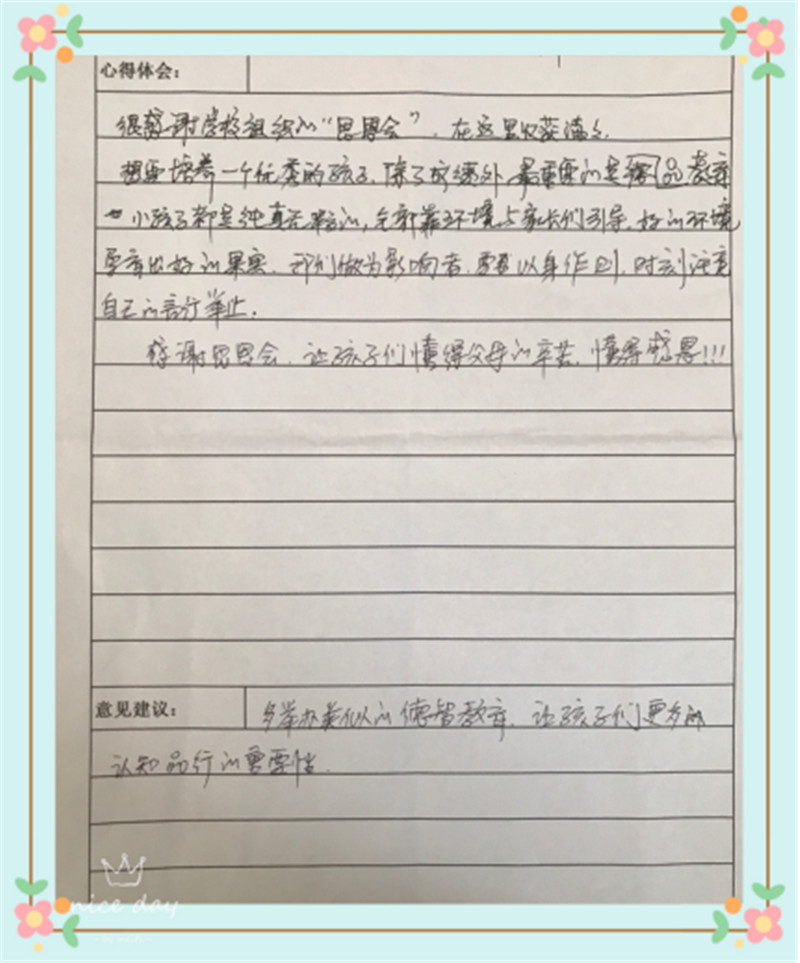 心得体会:
很感谢学校组织的“思恩会”,在这里收获满々.
想要培养一个优秀的孩子,除了成绩外,最重要的是品教育
小孩子都是纯真无邪的,全部靠环境与家长们引导,好的环境
更有出好的果实,我们做为影响者,要以身作则,时刻注意
自己的言行举止.
感谢思恩会,让孩子们懂得父母的辛苦,懂得感恩!!!
意见建议: 多举办类似的德智教育,让孩子们更多的
认知品行的重要性.
nice day